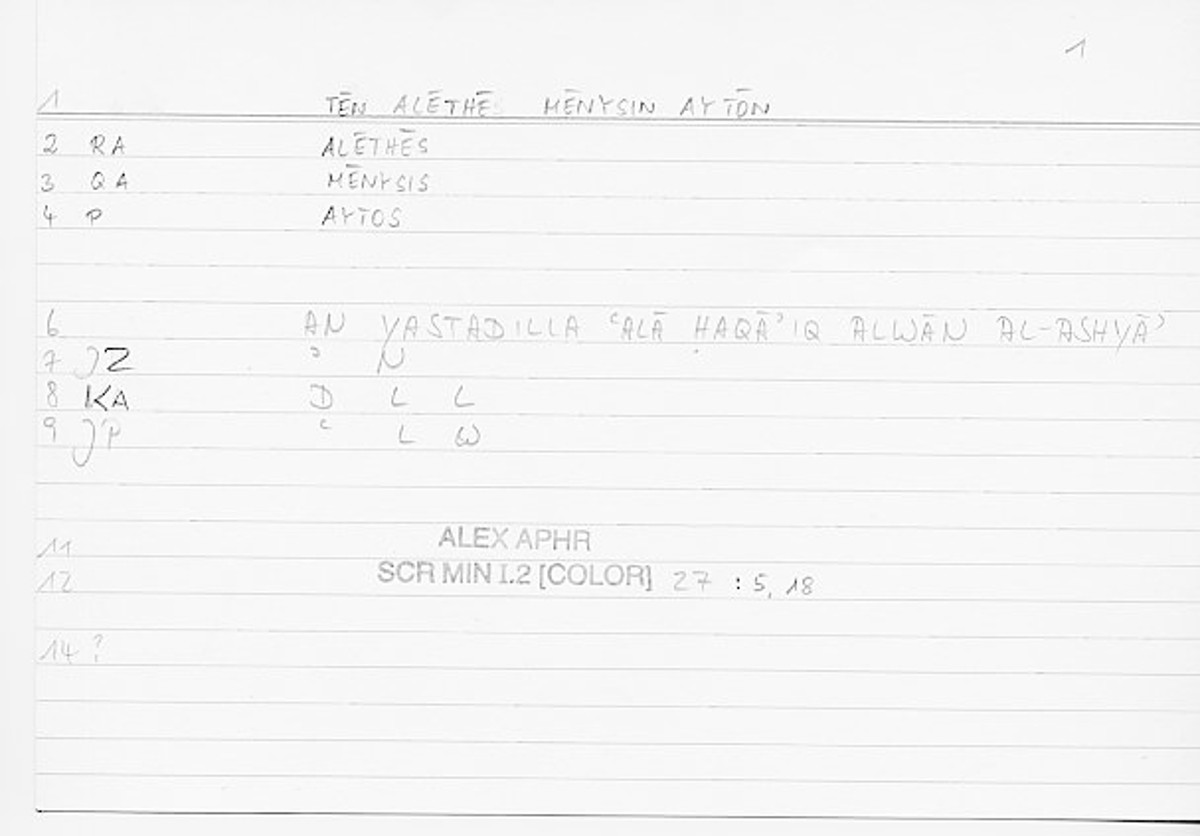 1
1 TĒN ALĒTHĒ MĒNYSIN AYTŌN
2 RA ALĒTHĒS
3 QA MĒNYSIS
4 P AYTOS
6 AN YASTADILLA ʿALĀ ḤAQĀʾIQ ALWĀN AL-ASHYĀʾ
7 JZ ʾ N
8 KA D L L
9 JP ʿ L W
11 ALEX APHR
12 SCR MIN I.2 [COLOR] 27 : 5, 18
14 ?